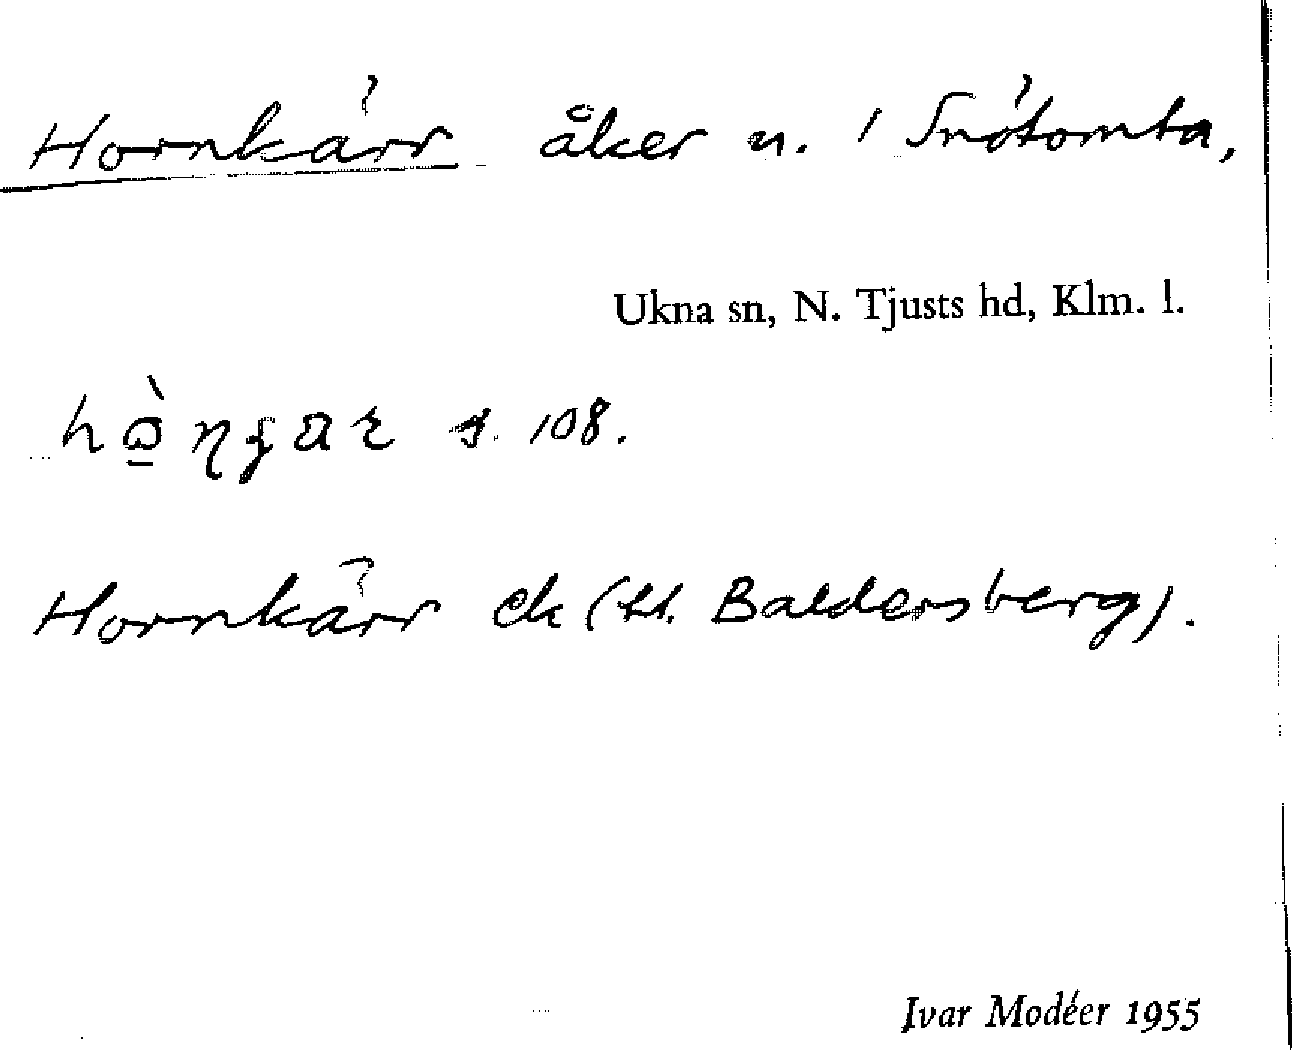 Hornkärr åker n. / Snötomta,
Ukna sn, N. Tjusts hd, Klm. l.
s. 108.
Hornkärr ek (tt. Baldersberg).
Ivar Modéer 1955